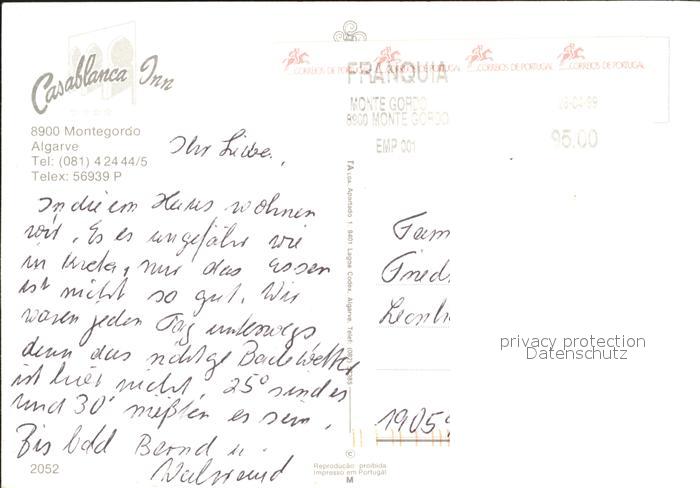 Casablanca Inn
8900 Montegordo
Algarve
Tel: (081) 4 24 44/5
Telex: 56939 P
CORREIOS DE PORTUGAL CORREIOS DE PORTUGAL CORREIOS DE PORTUGAL CORREIOS DE PORTUGAL
FRANQUIA
MONTE GORDO
8900 MONTE GORDO
EMP 001
95.00
Ihr Lieben,
In diesem Haus wohnen
wir. Es es ungefähr wie
in Kreta, nur das Essen
ist nicht so gut. Wir
waren jeden Tag unterwegs
denn das richtige Badewetter
ist hier nicht. 25° sind es
und 30° müßten es sein.
Bis bald Bernd u.
Waltraud
Fam
Fried
Leonh
1905
privacy protection
Datenschutz
2052
©
Reprodução proibida
Impresso em Portugal
M